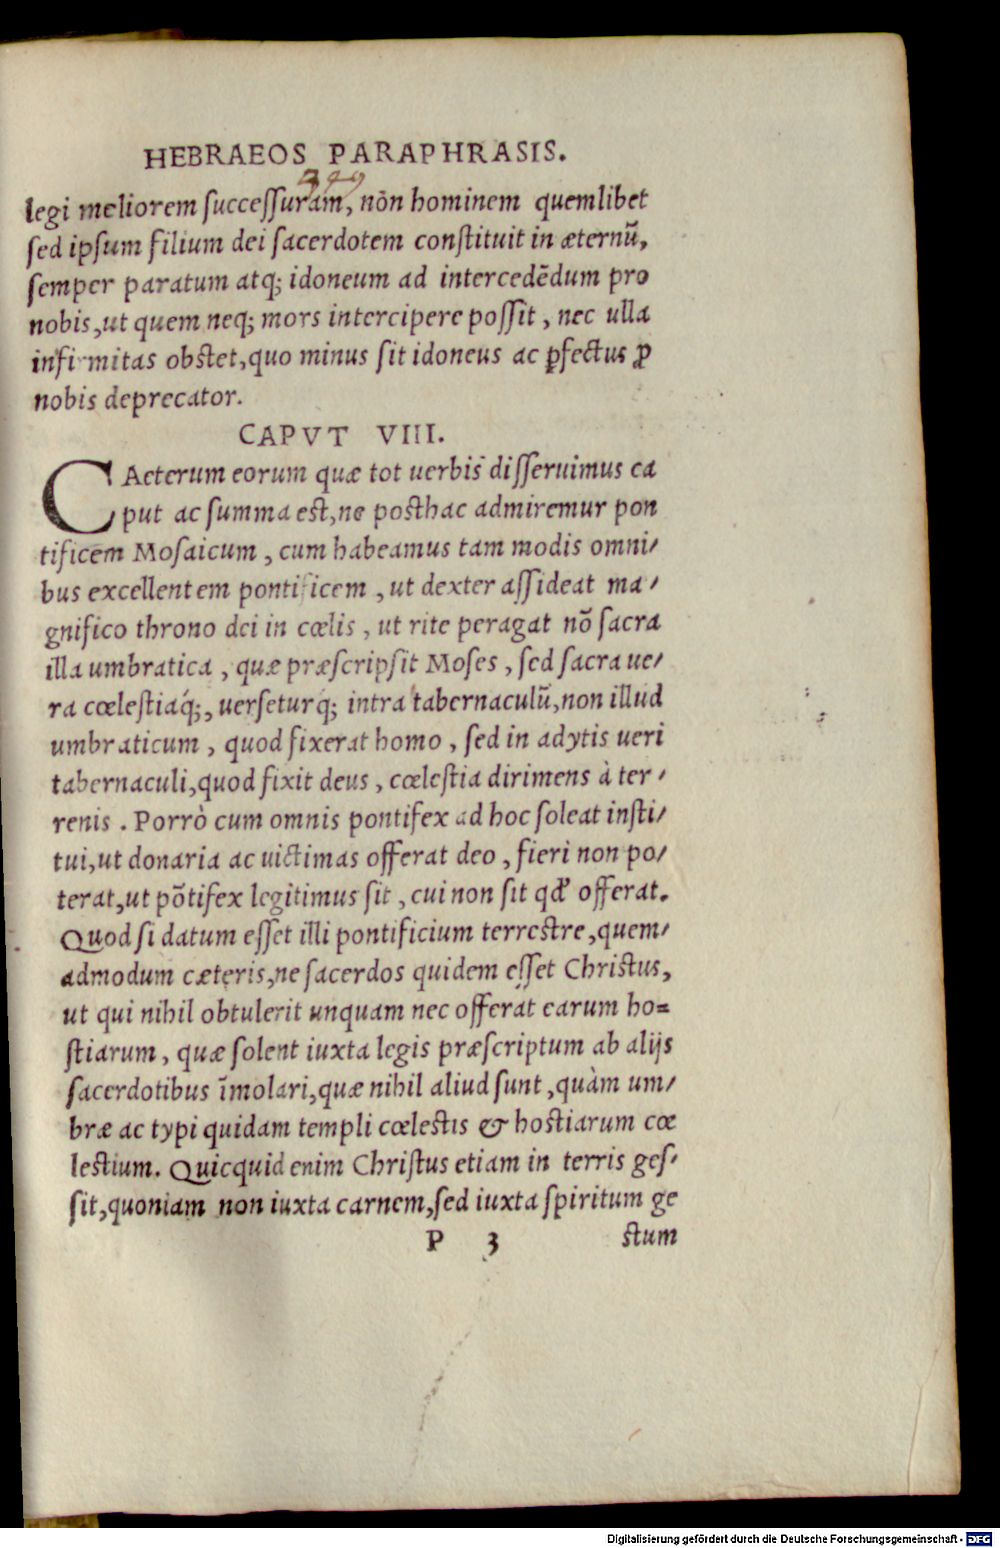 HEBRAEOS PARAPHRASIS.
349
legi meliorem ſucceſſuram, nōn hominem quemlibet
ſed ipſum filium dei ſacerdotem conſtituit in æternū,
ſemper paratum atq; idoneum ad intercedēdum pro
nobis,ut quem neq; mors intercipere poſſit, nec ulla
infirmitas obſtet,quo minus ſit idoneus ac ꝑfectus ꝓ
nobis deprecator.
CAPVT VIII.
CAeterum eorum quæ tot uerbis diſſeruimus ca
put ac ſumma eſt,ne poſthac admiremur pon
tificem Moſaicum, cum habeamus tam modis omni/
bus excellentem pontificem, ut dexter aſſideat ma/
gnifico throno dei in cœlis, ut rite peragat nō ſacra
illa umbratica, quæ præſcripſit Moſes, ſed ſacra ue/
ra cœleſtiáq;, uerſeturq́; intra tabernaculū,non illud
umbraticum, quod fixerat homo, ſed in adytis ueri
tabernaculi,quod fixit deus, cœleſtia dirimens à ter/
renis. Porrò cum omnis pontifex ad hoc ſoleat inſti/
tui,ut donaria ac uictimas offerat deo, fieri non po/
terat,ut pōtifex legitimus ſit, cui non ſit qđ offerat.
Quod ſi datum eſſet illi pontificium terreſtre,quem/
admodum cæteris,ne ſacerdos quidem eſſet Chriſtus,
ut qui nihil obtulerit unquam nec offerat earum ho=
ſtiarum, quæ ſolent iuxta legis præſcriptum ab alijs
ſacerdotibus īmolari,quæ nihil aliud ſunt,quàm um/
bræ ac typi quidam templi cœleſtis & hoſtiarum cœ
leſtium. Quicquid enim Chriſtus etiam in terris geſ/
ſit,quoniam non iuxta carnem,ſed iuxta ſpiritum ge
P 3 ſtum
Digitalisierung gefördert durch die Deutsche Forschungsgemeinschaft - DFG